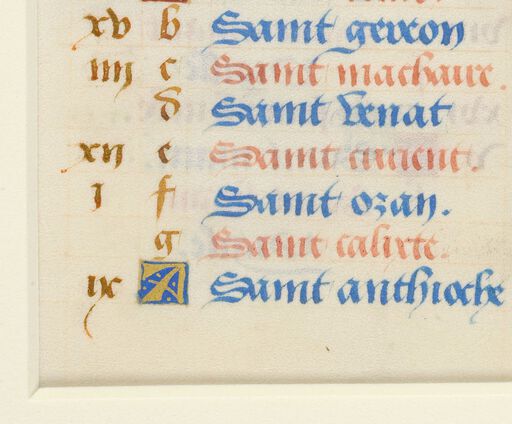 xv b Saint gerxon
iiij c Saint machaire.
d Saint venat
xij e Saint
i f Saint ozan.
g Saint calixte.
ix A Saint anthioche